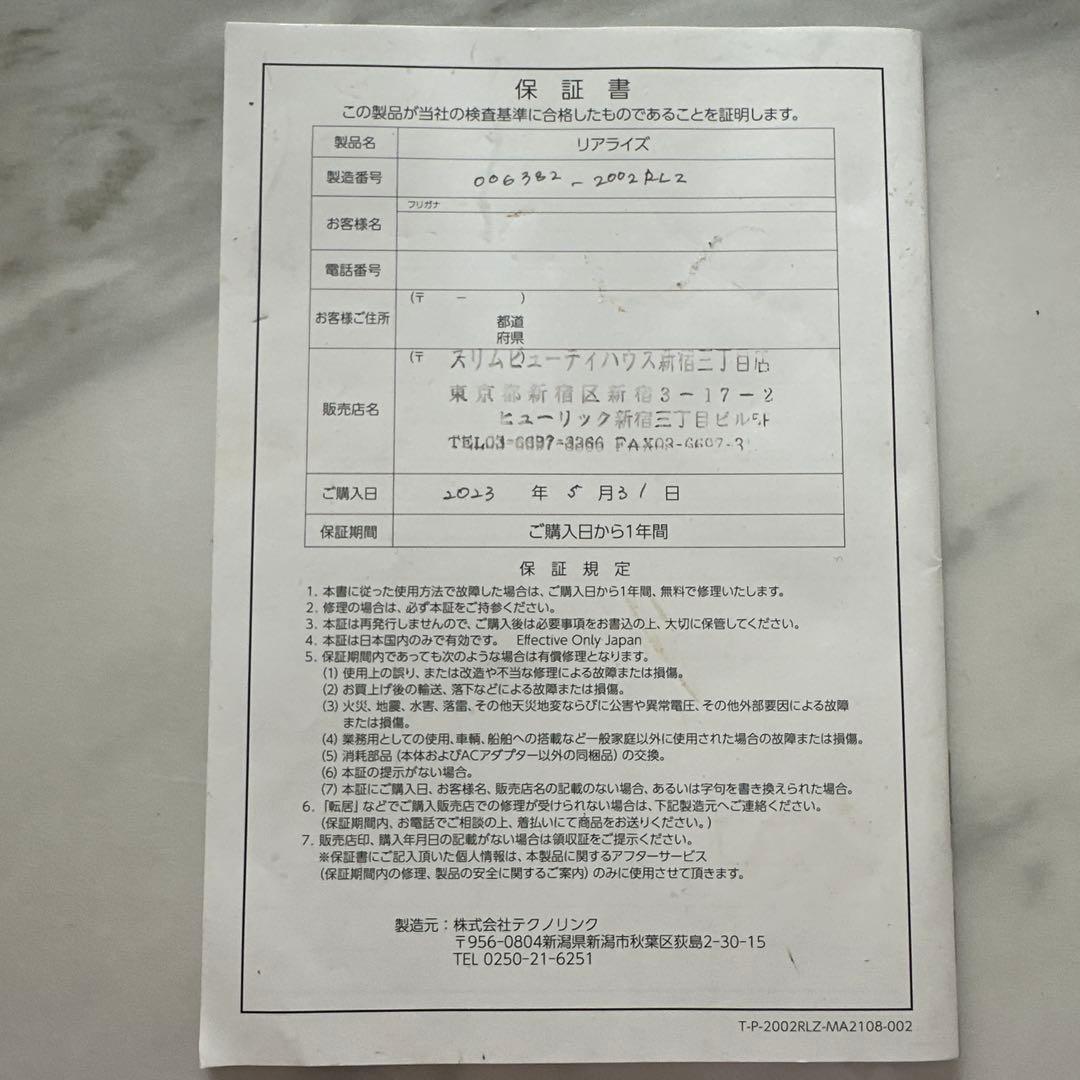 保証書
この製品が当社の検査基準に合格したものであることを証明します。
製品名 リアライズ
製造番号 006382-2002RLZ
お客様名 フリガナ
電話番号
お客様ご住所 (〒 － )
都道
府県
販売店名 (〒 )
スリムビューティハウス新宿三丁目店
東京都新宿区新宿3-17-2
ヒューリック新宿三丁目ビル
TEL03- FAX03-
ご購入日 2023 年 5 月 31 日
保証期間 ご購入日から1年間
保証規定
1. 本書に従った使用方法で故障した場合は、ご購入日から1年間、無料で修理いたします。
2. 修理の場合は、必ず本証をご持参ください。
3. 本証は再発行しませんので、ご購入後は必要事項をお書込の上、大切に保管してください。
4. 本証は日本国内のみで有効です。 Effective Only Japan
5. 保証期間内であっても次のような場合は有償修理となります。
(1) 使用上の誤り、または改造や不当な修理による故障または損傷。
(2) お買上げ後の輸送、落下などによる故障または損傷。
(3) 火災、地震、水害、落雷、その他天災地変ならびに公害や異常電圧、その他外部要因による故障
または損傷。
(4) 業務用としての使用、車輌、船舶への搭載など一般家庭以外に使用された場合の故障または損傷。
(5) 消耗部品（本体およびACアダプター以外の同梱品）の交換。
(6) 本証の提示がない場合。
(7) 本証にご購入日、お客様名、販売店名の記載のない場合、あるいは字句を書き換えられた場合。
6. 「転居」などでご購入販売店での修理が受けられない場合は、下記製造元へご連絡ください。
（保証期間内、お電話でご相談の上、着払いにて商品をお送りください。）
7. 販売店印、購入年月日の記載がない場合は領収証をご提示ください。
※保証書にご記入頂いた個人情報は、本製品に関するアフターサービス
（保証期間内の修理、製品の安全に関するご案内）のみに使用させて頂きます。
製造元：株式会社テクノリンク
〒956-0804新潟県新潟市秋葉区荻島2-30-15
TEL 0250-21-6251
T-P-2002RLZ-MA2108-002